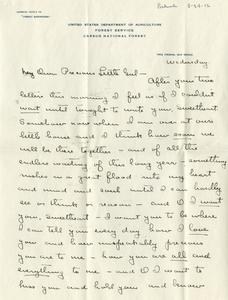 ADDRESS REPLY TO
"FOREST SUPERVISOR"
UNITED STATES DEPARTMENT OF AGRICULTURE
FOREST SERVICE
CARSON NATIONAL FOREST
Wednesday
My Own Precious Little Girl -
After your two
letters this morning I feel as if I couldn't
wait until tonight to write you, sweetheart
Somehow now when I am over at our
little house and I think how soon we
will be there together - and of all this
endless waiting of this long year - something
rushes in a great flood into my heart
and mind and soul until I can hardly
see or think or reason - and O I want
you, sweetheart - I want you to be where
I can tell you every day how I love
you and how unspeakably precious
you are to me - how you are all and
everything to me - and O I want to
kiss you and hold you and know